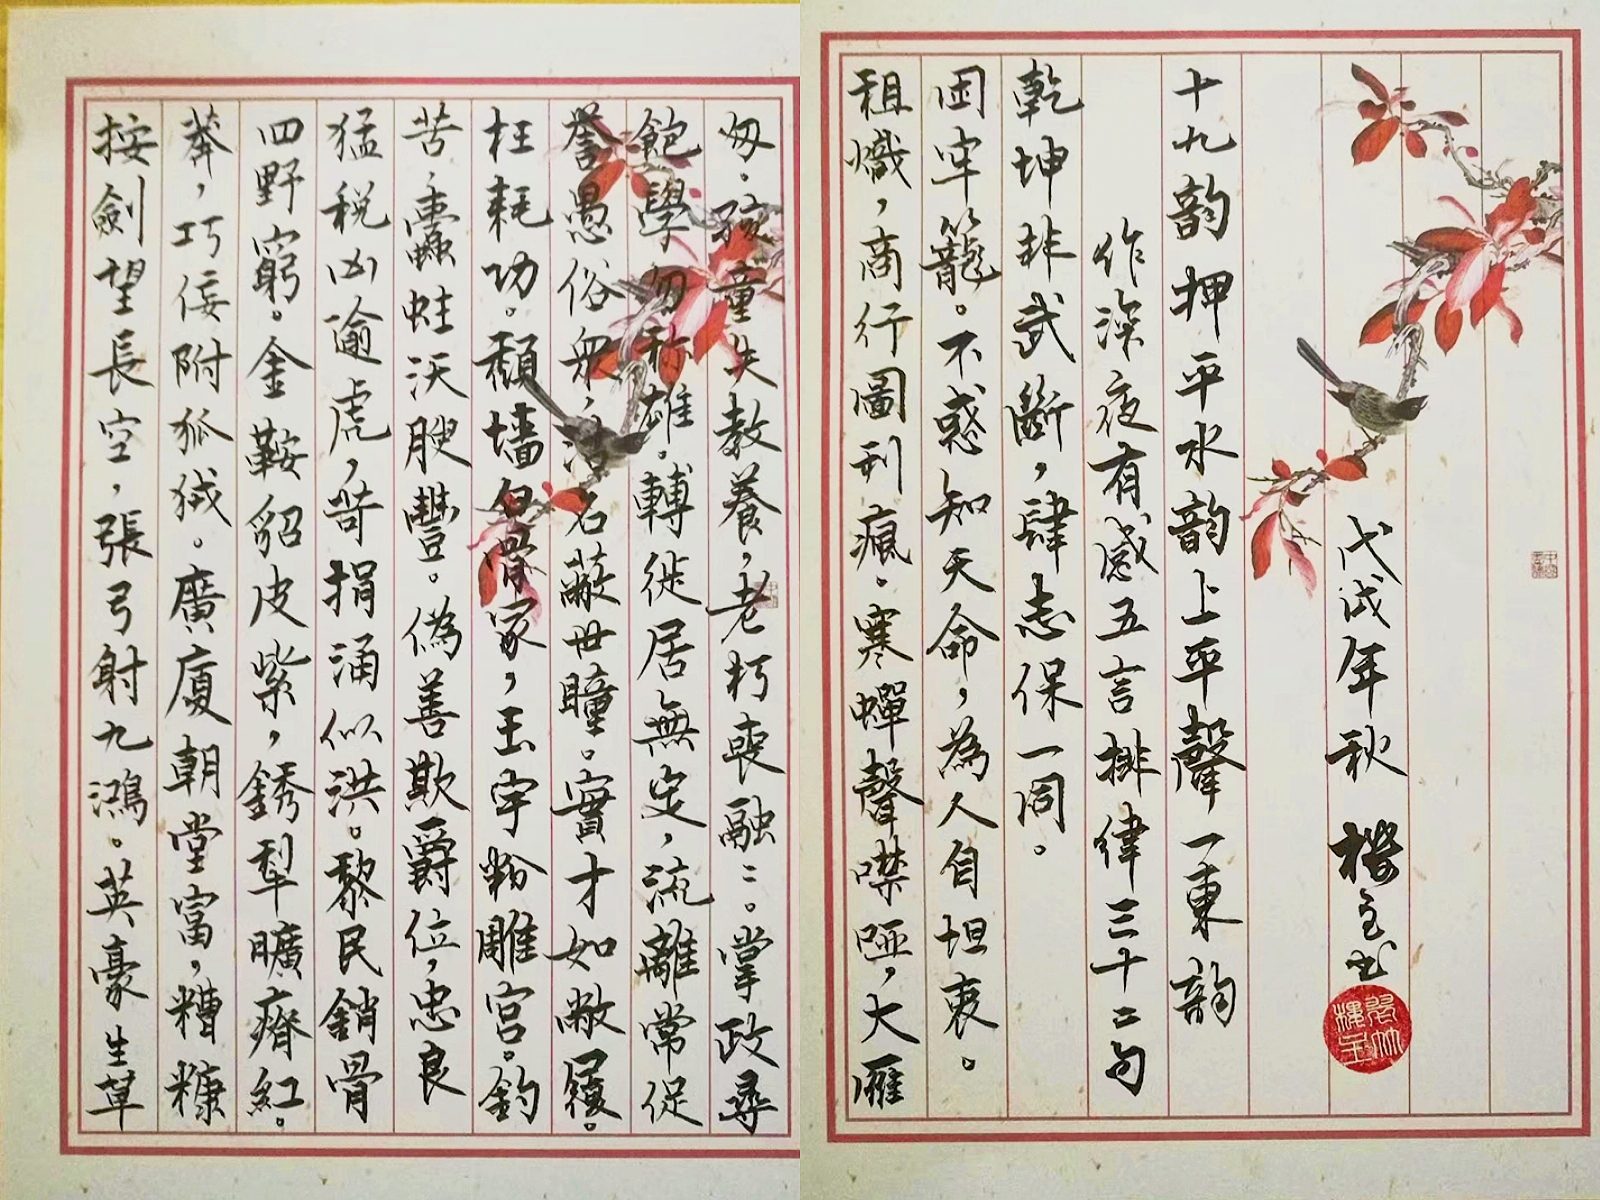 按劍望長空，張弓射九鴻。英豪生草
莽，巧佞附狐狨。廣廈朝堂富，糟糠
四野窮。金鞍貂皮紫，銹犁曠瘠紅。
猛税凶逾虎，苛捐涌似洪。黎民銷骨
苦，蠹蛀沃膄豐。偽善欺爵位，忠良
枉耗功。頹墙白骨冢，玉宇粉雕宫。釣
譽愚俗衆，沽名蔽世瞳。實才如敝履。
飽學勿称雄。轉徙居無定，流離常促
匆。孩童失教養，老朽喪融〻。掌政尋
租幟，商行圖利瘋。寒蟬聲噤啞，大雁
困牢籠。不惑知天命，為人自坦衷。
乾坤非武斷，肆志保一同。
作深夜有感五言排律三十二句
十九韵押平水韵上平聲一東韵
戊戌年秋 樓主书